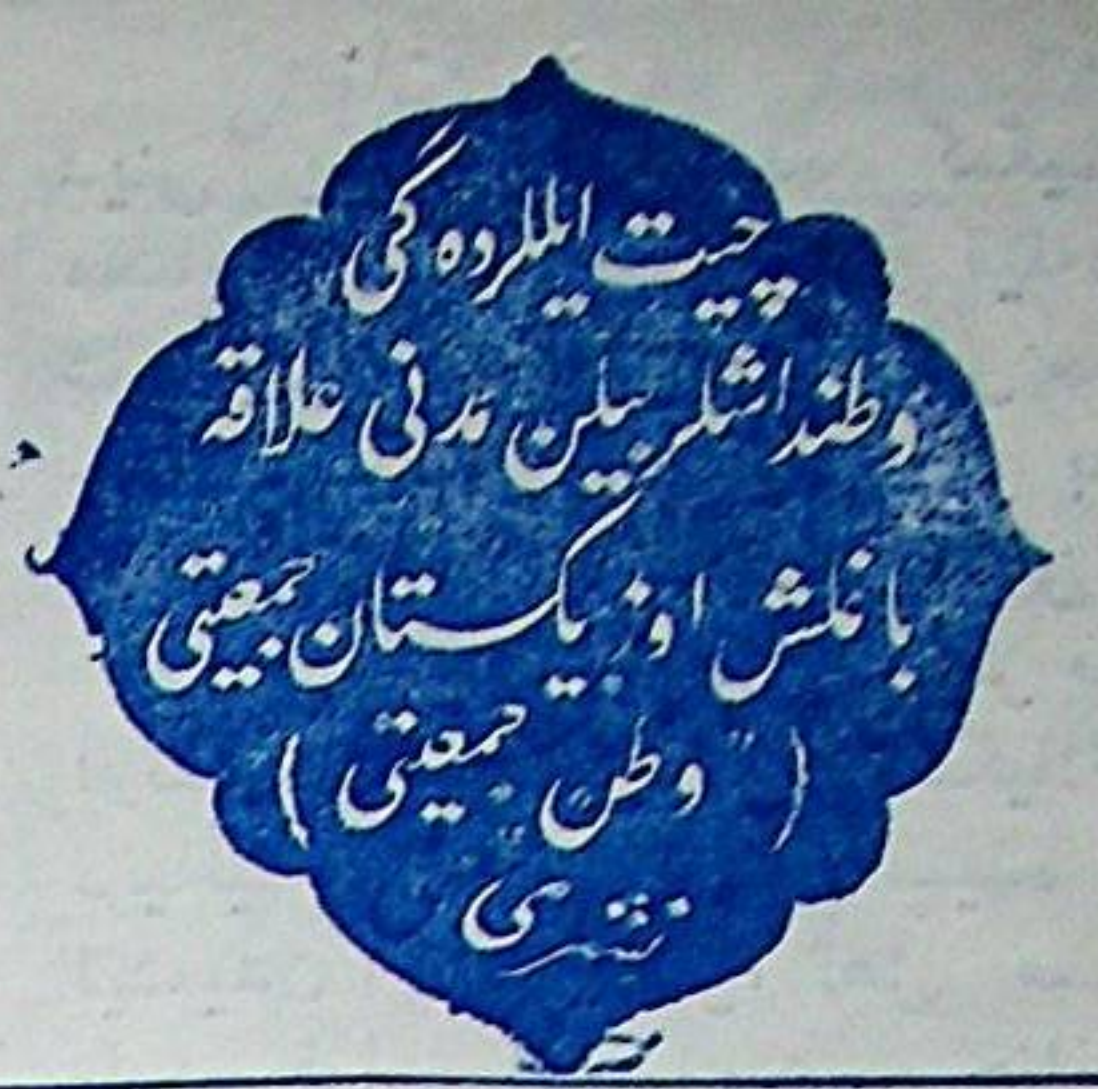 چیت ایللرده گی
وطنداشلر بیلن مدنی علاقه
باغلش اوزبکستان جمعیتی
( وطن جمعیتی )
نشری